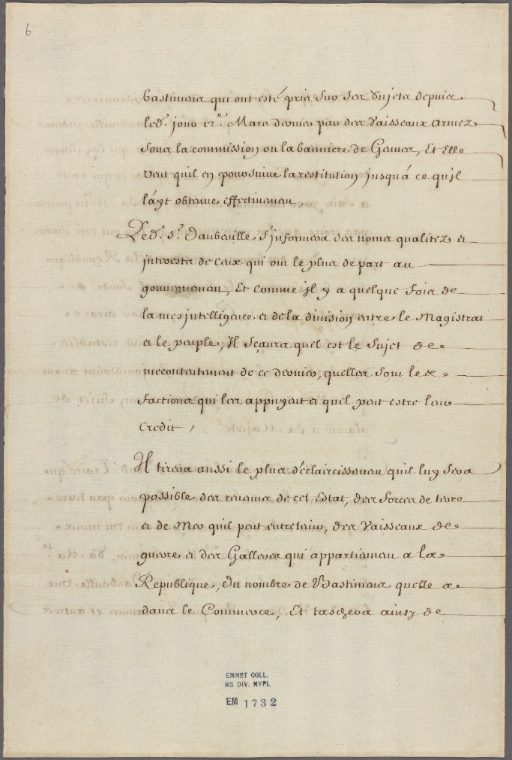 6
bastimens qui ont esté pris sur ses Sujets depuis
led. jour 12e. Mars dernier par des Vaisseaux armez
sous la commission ou la banniere de Gennes, Et Elle
veut quil en poursuive la restitution jusqu'à ce qu'il
l'ayt obtenue effectivement,
Led. Sr. Daubeville s'informera des noms qualitez et
interests de ceux qui ont le plus de part au
gouvernement, Et comme il y a quelque fois de
la mesintelligence et de la division entre le Magistrat
et le peuple, Il sçaura quel est le sujet de
mecontentement de ce dernier, quelles sont les
factions qui les appuyent et quel peut estre leur
credit,
Il tirera aussi le plus d'éclaircissement quil luy sera
possible des revenus de cet Estat, des forces de terre
et de Mer quil peut entretenir, des Vaisseaux de
guerre et des Galleres qui appartiennent a la
Republique, du nombre de Bastimens quelle a
dans le Commerce, Et taschera ainsy de
EMMET COLL.
MS DIV. NYPL
EM 1732